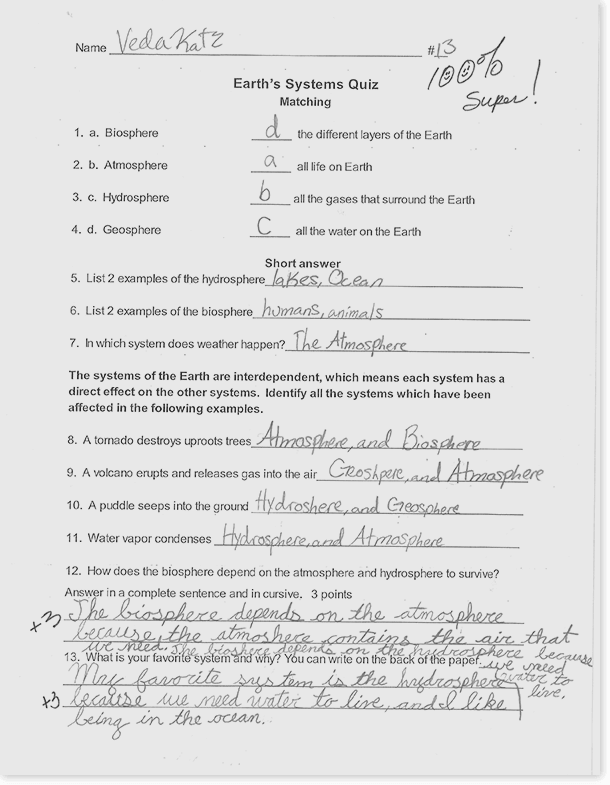 Name Veda Katz #13
100%
Super!
Earth's Systems Quiz
Matching
1. a. Biosphere d the different layers of the Earth
2. b. Atmosphere a all life on Earth
3. c. Hydrosphere b all the gases that surround the Earth
4. d. Geosphere C all the water on the Earth
Short answer
5. List 2 examples of the hydrosphere lakes, Ocean
6. List 2 examples of the biosphere humans, animals
7. In which system does weather happen? The Atmosphere
The systems of the Earth are interdependent, which means each system has a
direct effect on the other systems. Identify all the systems which have been
affected in the following examples.
8. A tornado destroys uproots trees Atmosphere, and Biosphere
9. A volcano erupts and releases gas into the air Geoshpere, and Atmosphere
10. A puddle seeps into the ground Hydroshere, and Geosphere
11. Water vapor condenses Hydrosphere, and Atmosphere
12. How does the biosphere depend on the atmosphere and hydrosphere to survive?
Answer in a complete sentence and in cursive. 3 points
+3 The biosphere depends on the atmosphere
because, the atmoshere contains the air that
we need. The bioshere depends on the hydrosphere because
we need
water to
live.
13. What is your favorite system and why? You can write on the back of the paper.
My favorite system is the hydrosphere
+3 because we need water to live, and I like
being in the ocean.